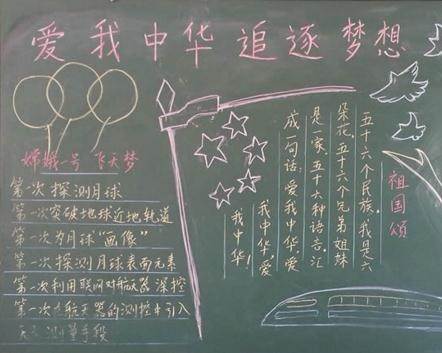 爱我中华 追逐梦想
嫦娥一号 飞天梦
第一次探测月球
第一次突破地球近地轨道
第一次为月球“画像”
第一次探测月球表面元素
第一次利用联网对航天器深控
第一次在航天器的测控中引入
天文测量手段
祖国颂
五十六个民族,我是六
朵花,五十六个兄弟姐妹
是一家,五十六种语言,汇
成一句话:爱我中华,爱
我中华爱
我中华!